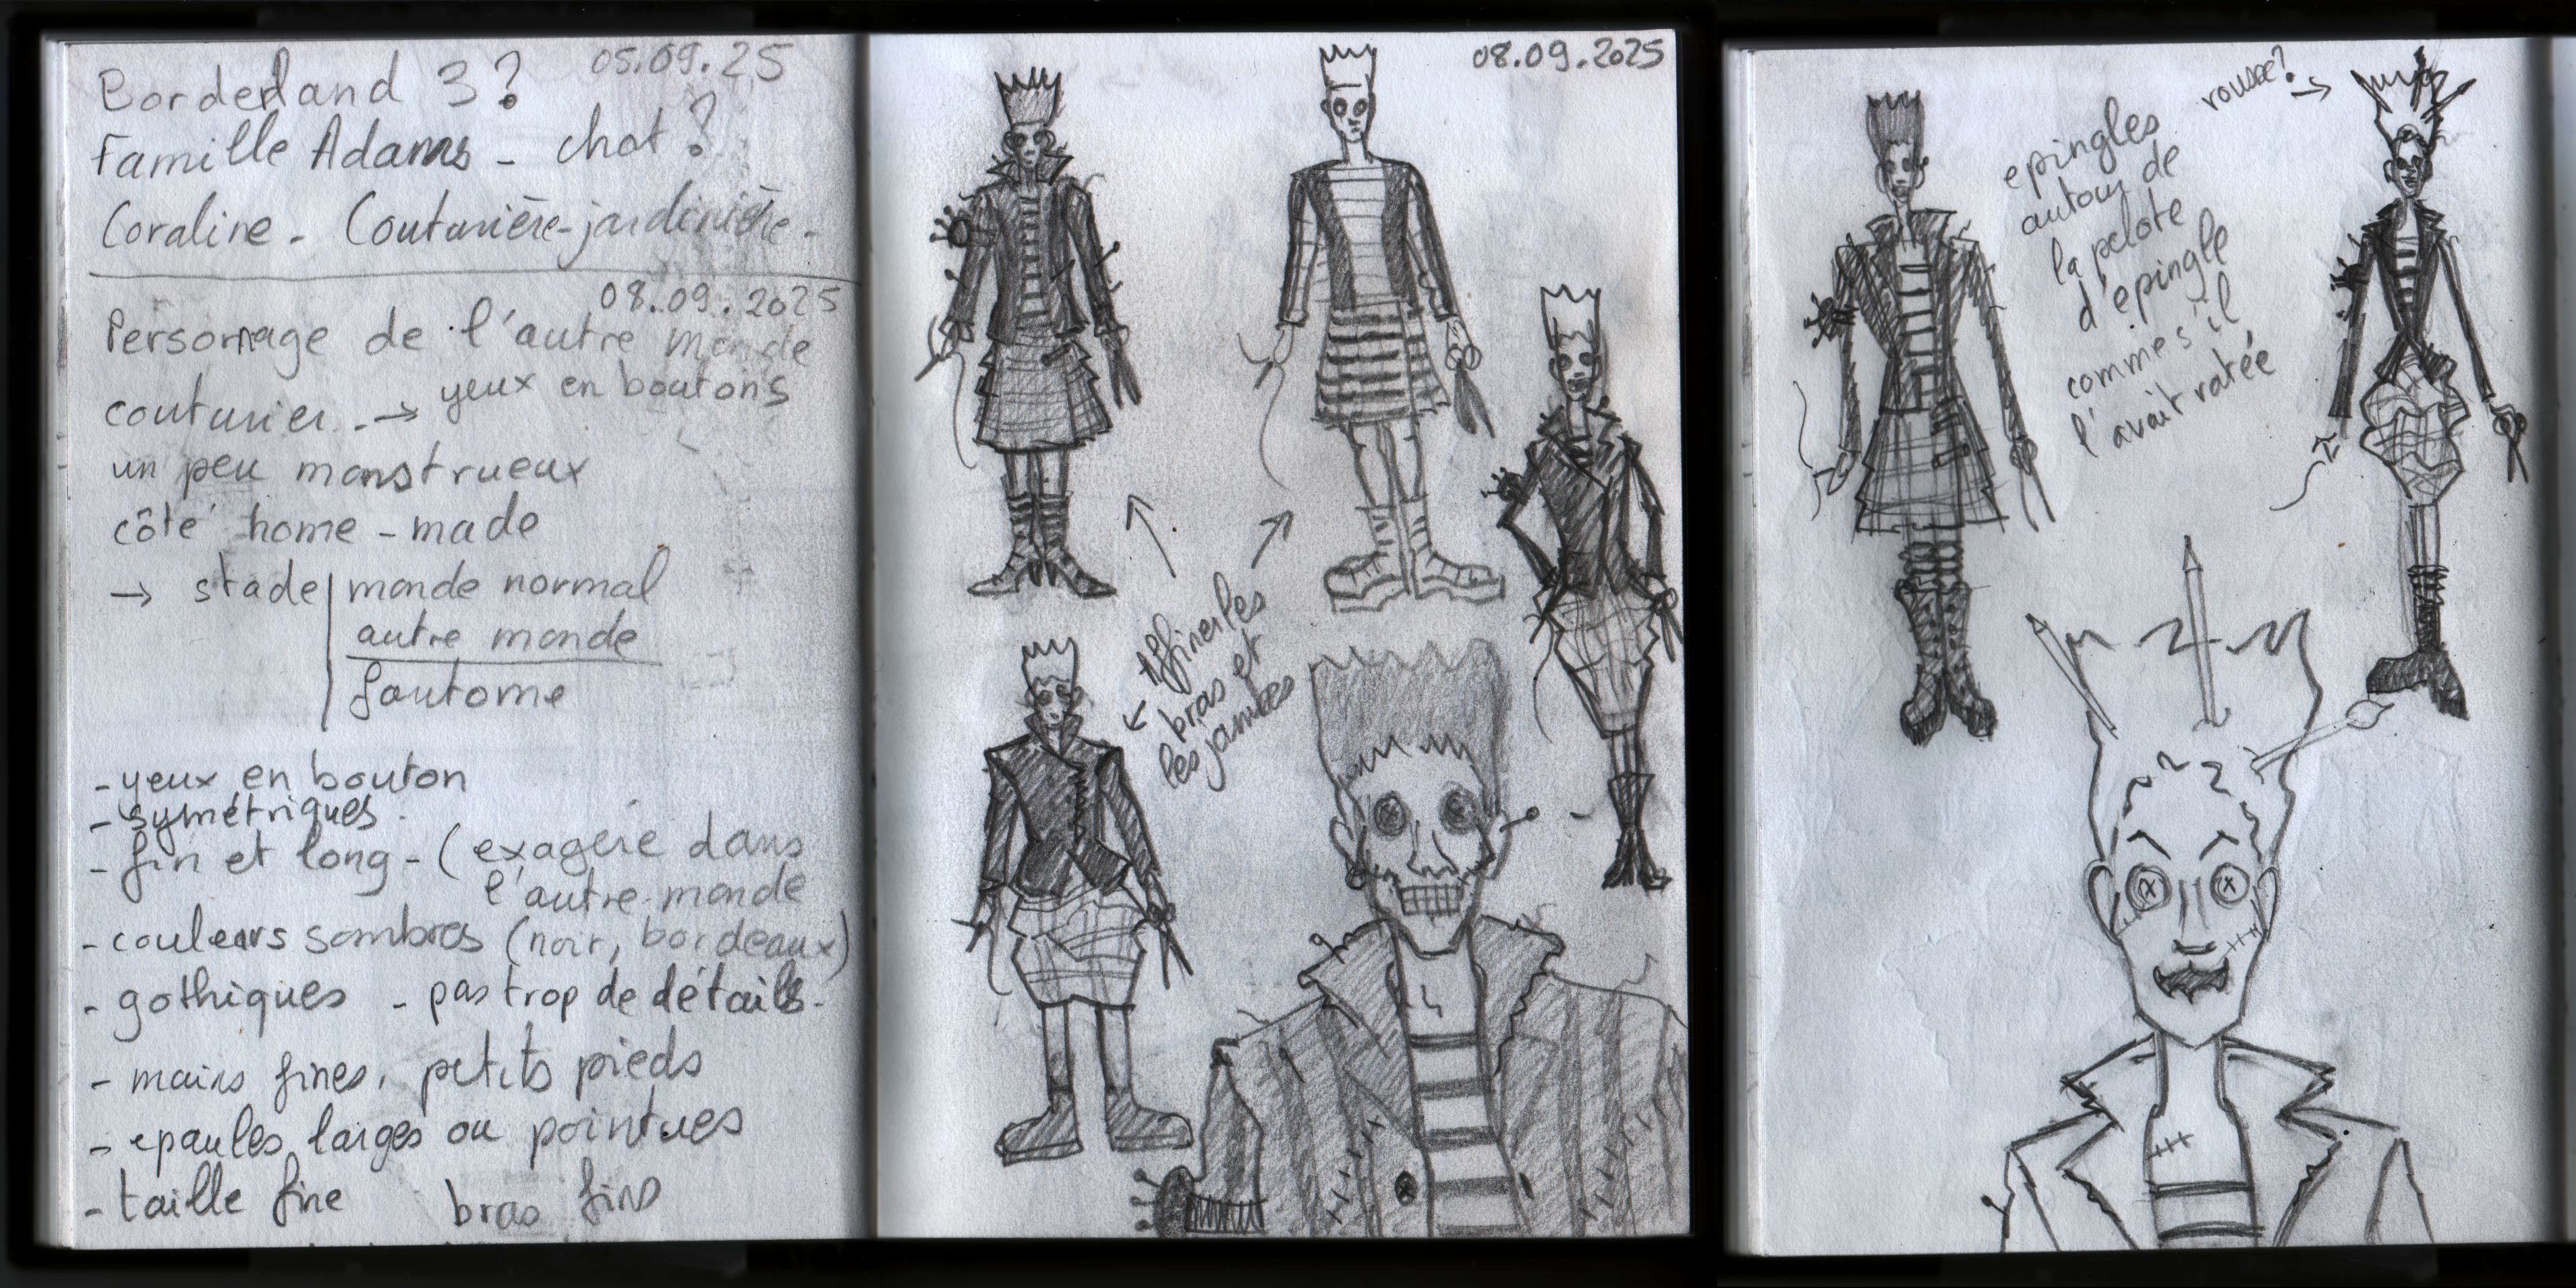 05.09.25
Borderland 3?
Famille Adams - chat?
Coraline - Couturière-jardinière -
08.09.2025
Personnage de l'autre monde
couturier. → yeux en boutons
un peu monstrueux
côté home-made
→ stade | monde normal
autre monde
fantome
- yeux en bouton
- symétriques.
- fin et long - (exagéré dans
l'autre monde
- couleurs sombres (noir, bordeaux)
- gothiques - pas trop de détails.
- mains fines, petits pieds
- epaules larges ou pointues
- taille fine bras fins
08.09.2025
Affiner les
bras et
les jambes
epingles
autour de
la pelote
d'epingle
comme s'il
l'avait ratée
rousse? →